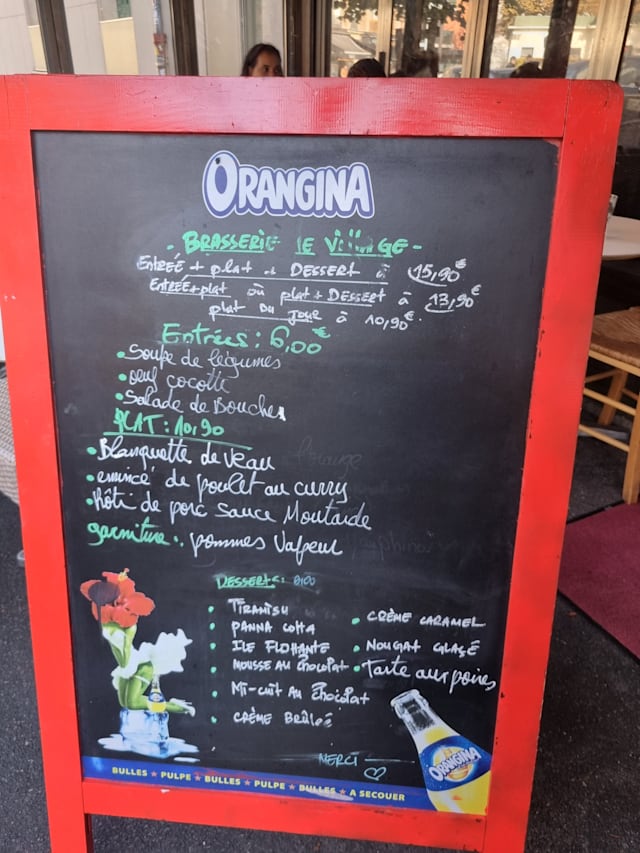 ORANGINA
- BRASSERIE LE VILLAGE -
ENTREÉ + plat + DESSERT à 15,90€
ENTREÉ + plat où plat + DESSERT à 13,90€
plat DU JOUR à 10,90€.
Entrées : 6,00€
• Soupe de légumes
• œuf cocotte
• Salade de Bouches
PLAT : 10,90
• Blanquette de veau
• emincé de poulet au curry
• Rôti de porc sauce Moutarde
garniture : pommes Vapeur
DESSERTS :
• TIRAMISU
• PANNA COTTA
• ILE FLOTTANTE
• MOUSSE AU CHOCOLAT
• MI-CUIT AU CHOCOLAT
• CRÈME BRÛLÉE
• CRÈME CARAMEL
• NOUGAT GLASÉ
• Tarte aux poires
MERCI
ORANGINA
BULLES ★ PULPE ★ BULLES ★ PULPE ★ BULLES ★ A SECOUER